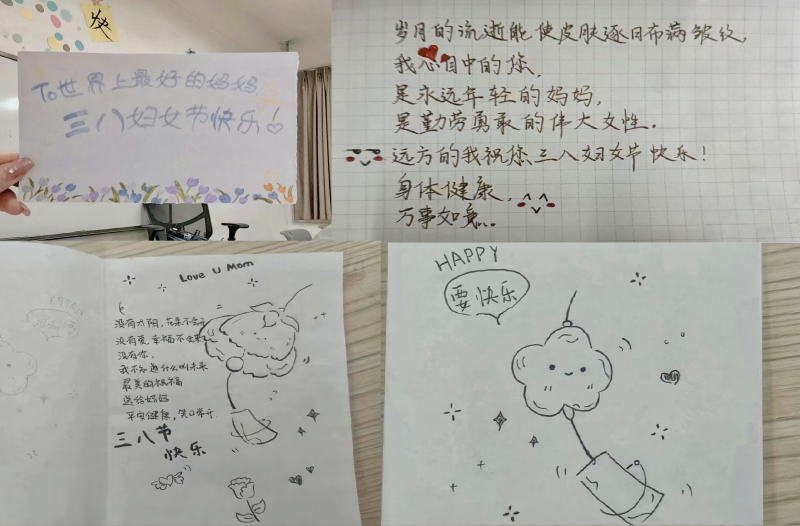 To世界上最好的妈妈
三八妇女节快乐!
岁月的流逝能使皮肤逐日布满皱纹,
我心目中的您,
是永远年轻的妈妈,
是勤劳勇敢的伟大女性.
远方的我祝您三八妇女节快乐!
身体健康,
万事如意..
Love U Mom
没有太阳,花朵不会开
没有爱,幸福不会来
没有你,
我不知道什么叫未来
最美的祝福
送给妈妈
平安健康,笑口常开
三八节
快乐
HAPPY
要快乐